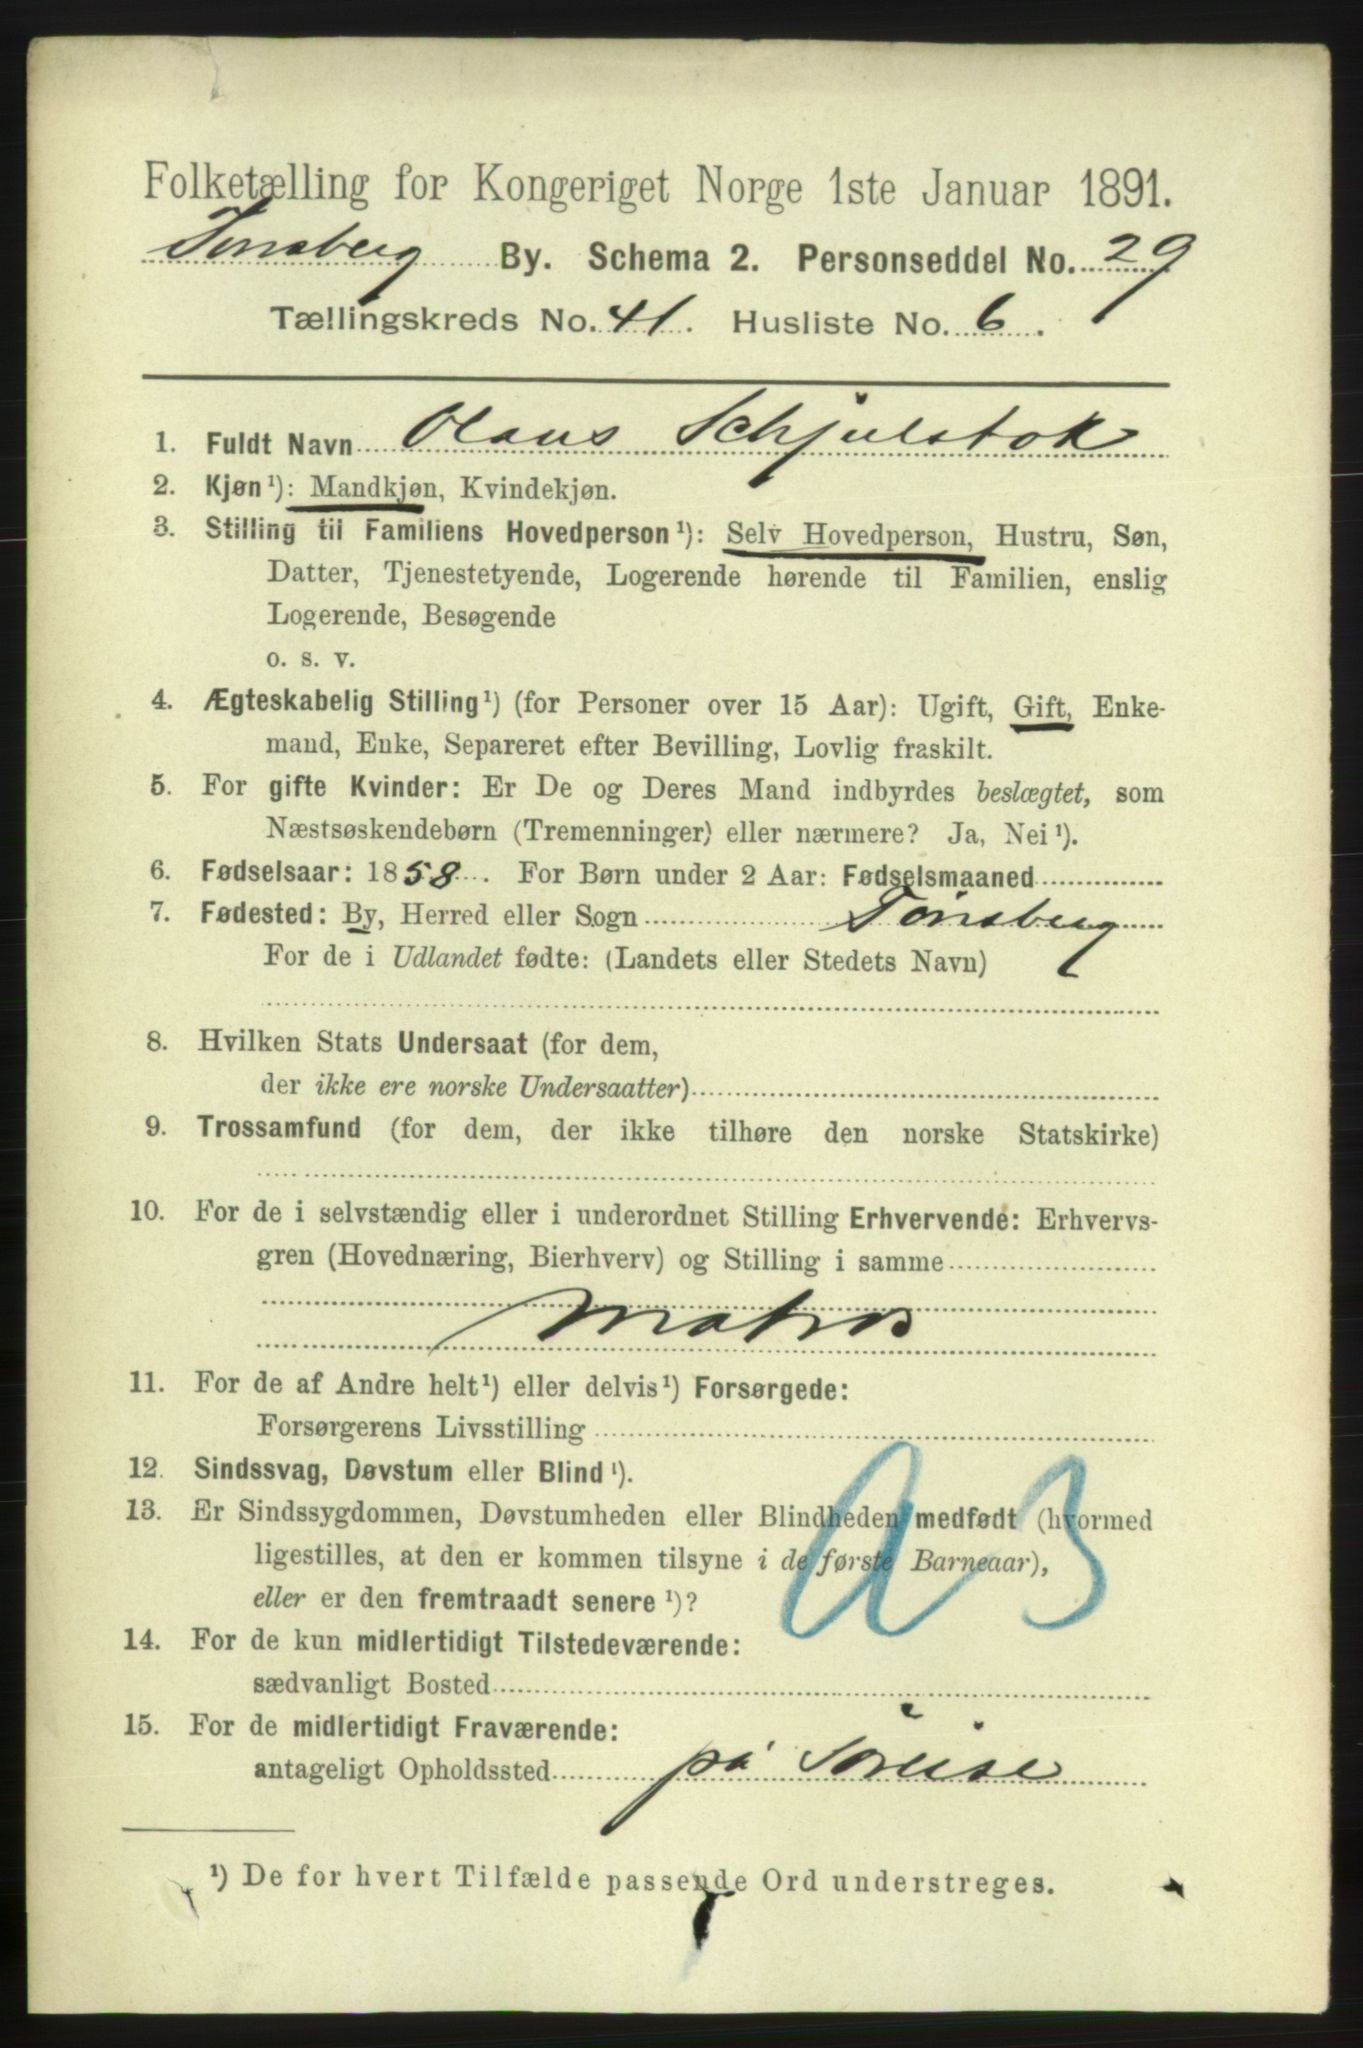 Folketælling for Kongeriget Norge 1ste Januar 1891.
Tønsberg By. Schema 2. Personseddel No. 29
Tællingskreds No. 41. Husliste No. 6.
1. Fuldt Navn Olaus Schjulstok
2. Kjøn¹): Mandkjøn, Kvindekjøn.
3. Stilling til Familiens Hovedperson¹): Selv Hovedperson, Hustru, Søn,
Datter, Tjenestetyende, Logerende hørende til Familien, enslig
Logerende, Besøgende
o. s. v.
4. Ægteskabelig Stilling¹) (for Personer over 15 Aar): Ugift, Gift, Enke-
mand, Enke, Separeret efter Bevilling, Lovlig fraskilt.
5. For gifte Kvinder: Er De og Deres Mand indbyrdes beslægtet, som
Næstsøskendebørn (Tremenninger) eller nærmere? Ja, Nei¹).
6. Fødselsaar: 1858. For Børn under 2 Aar: Fødselsmaaned
7. Fødested: By, Herred eller Sogn Tønsberg
For de i Udlandet fødte: (Landets eller Stedets Navn)
8. Hvilken Stats Undersaat (for dem,
der ikke ere norske Undersaatter)
9. Trossamfund (for dem, der ikke tilhøre den norske Statskirke)
10. For de i selvstændig eller i underordnet Stilling Erhvervende: Erhvervs-
gren (Hovednæring, Bierhverv) og Stilling i samme
Matros
11. For de af Andre helt¹) eller delvis¹) Forsørgede:
Forsørgerens Livsstilling
12. Sindssvag, Døvstum eller Blind¹).
13. Er Sindssygdommen, Døvstumheden eller Blindheden medfødt (hvormed
ligestilles, at den er kommen tilsyne i de første Barneaar),
eller er den fremtraadt senere¹)?
14. For de kun midlertidigt Tilstedeværende:
sædvanligt Bosted
15. For de midlertidigt Fraværende:
antageligt Opholdssted på Söreise
¹) De for hvert Tilfælde passende Ord understreges.